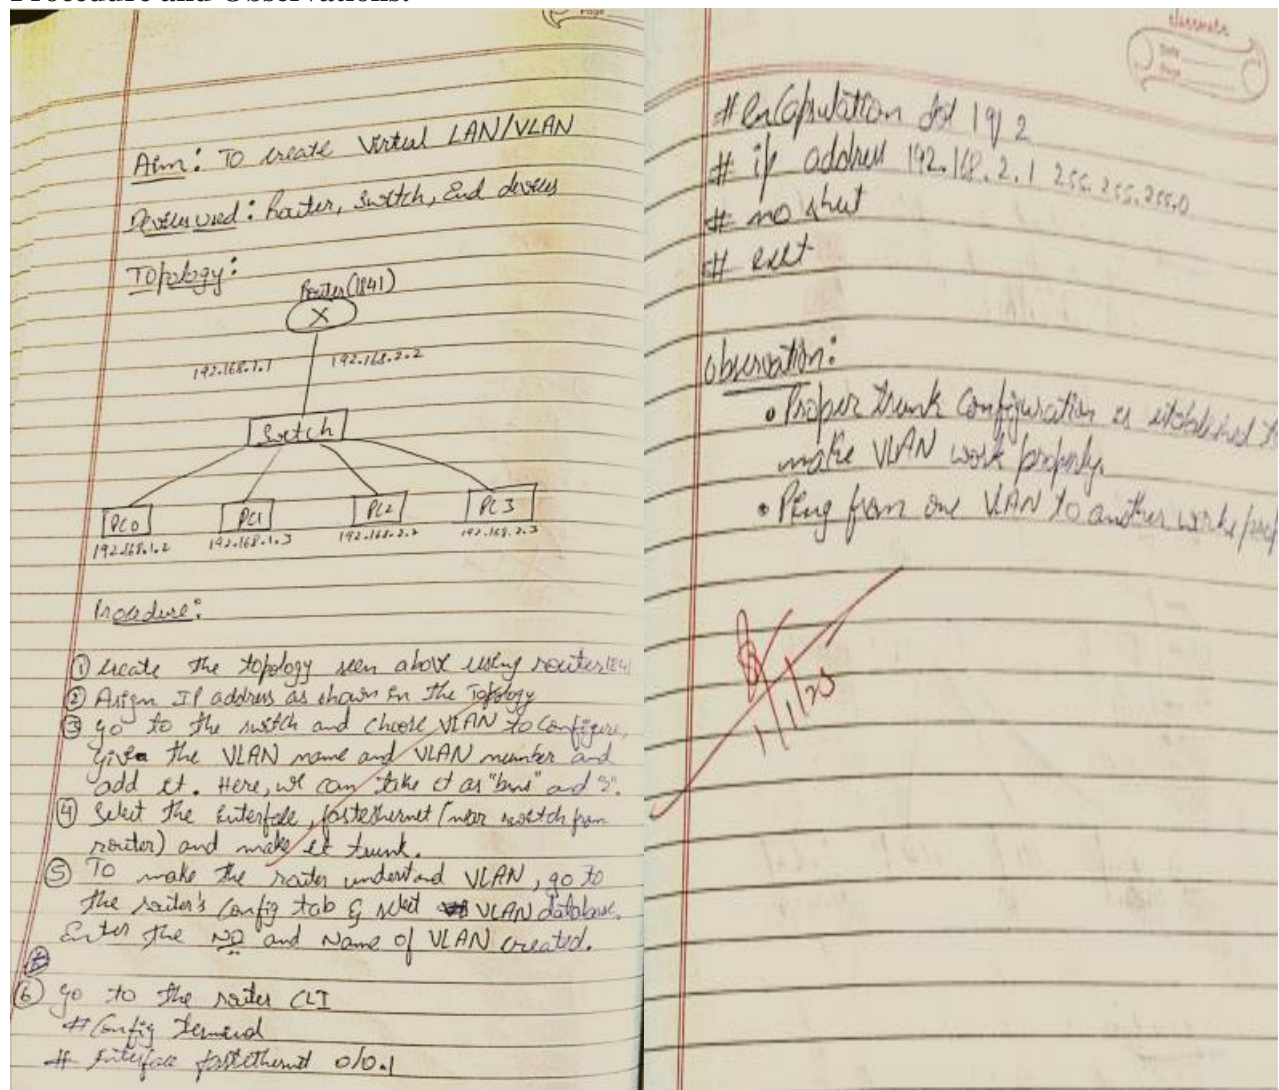 Procedure and Observations:
Aim: To create Virtual LAN/VLAN
Devices used: Router, Switch, End devices
Topology:
Router(1841)
X
192.168.1.1
192.168.2.2
Switch
PC0
PC1
PC2
PC3
192.168.1.2
192.168.1.3
192.168.2.2
192.168.2.3
Procedure:
① create the topology seen above using router 1841
② Assign IP address as shown in the Topology
③ go to the switch and choose VLAN to configure,
give the VLAN name and VLAN number and
add it. Here, we can take it as "bms" and 2".
④ Select the interface, fastethernet (near switch from
router) and make it trunk.
⑤ To make the router understand VLAN, go to
the router's Config tab & select VLAN database.
Enter the NO and Name of VLAN created.
⑥ go to the router CLI
# Config terminal
# Interface fastethernet 0/0.1
classmate
Date
Page
# encapsulation dot 1q 2
# ip address 192.168.2.1 255.255.255.0
# no shut
# exit
Observation:
• Proper trunk configuration is established to
make VLAN work properly.
• Ping from one VLAN to another works
1/1/25